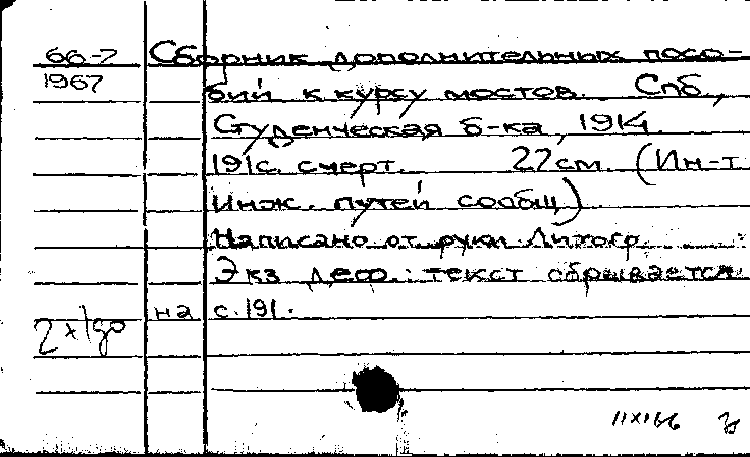 66-7 Сборник дополнительных посо-
1967 бий к курсу мостов. Спб.,
Студенческая б-ка, 1914.
191с. с черт. 27см. (Ин-т
инж. путей сообщ.)
Написано от руки. Литогр.
Экз. деф.: текст обрывается
на с. 191.
11 XI 66